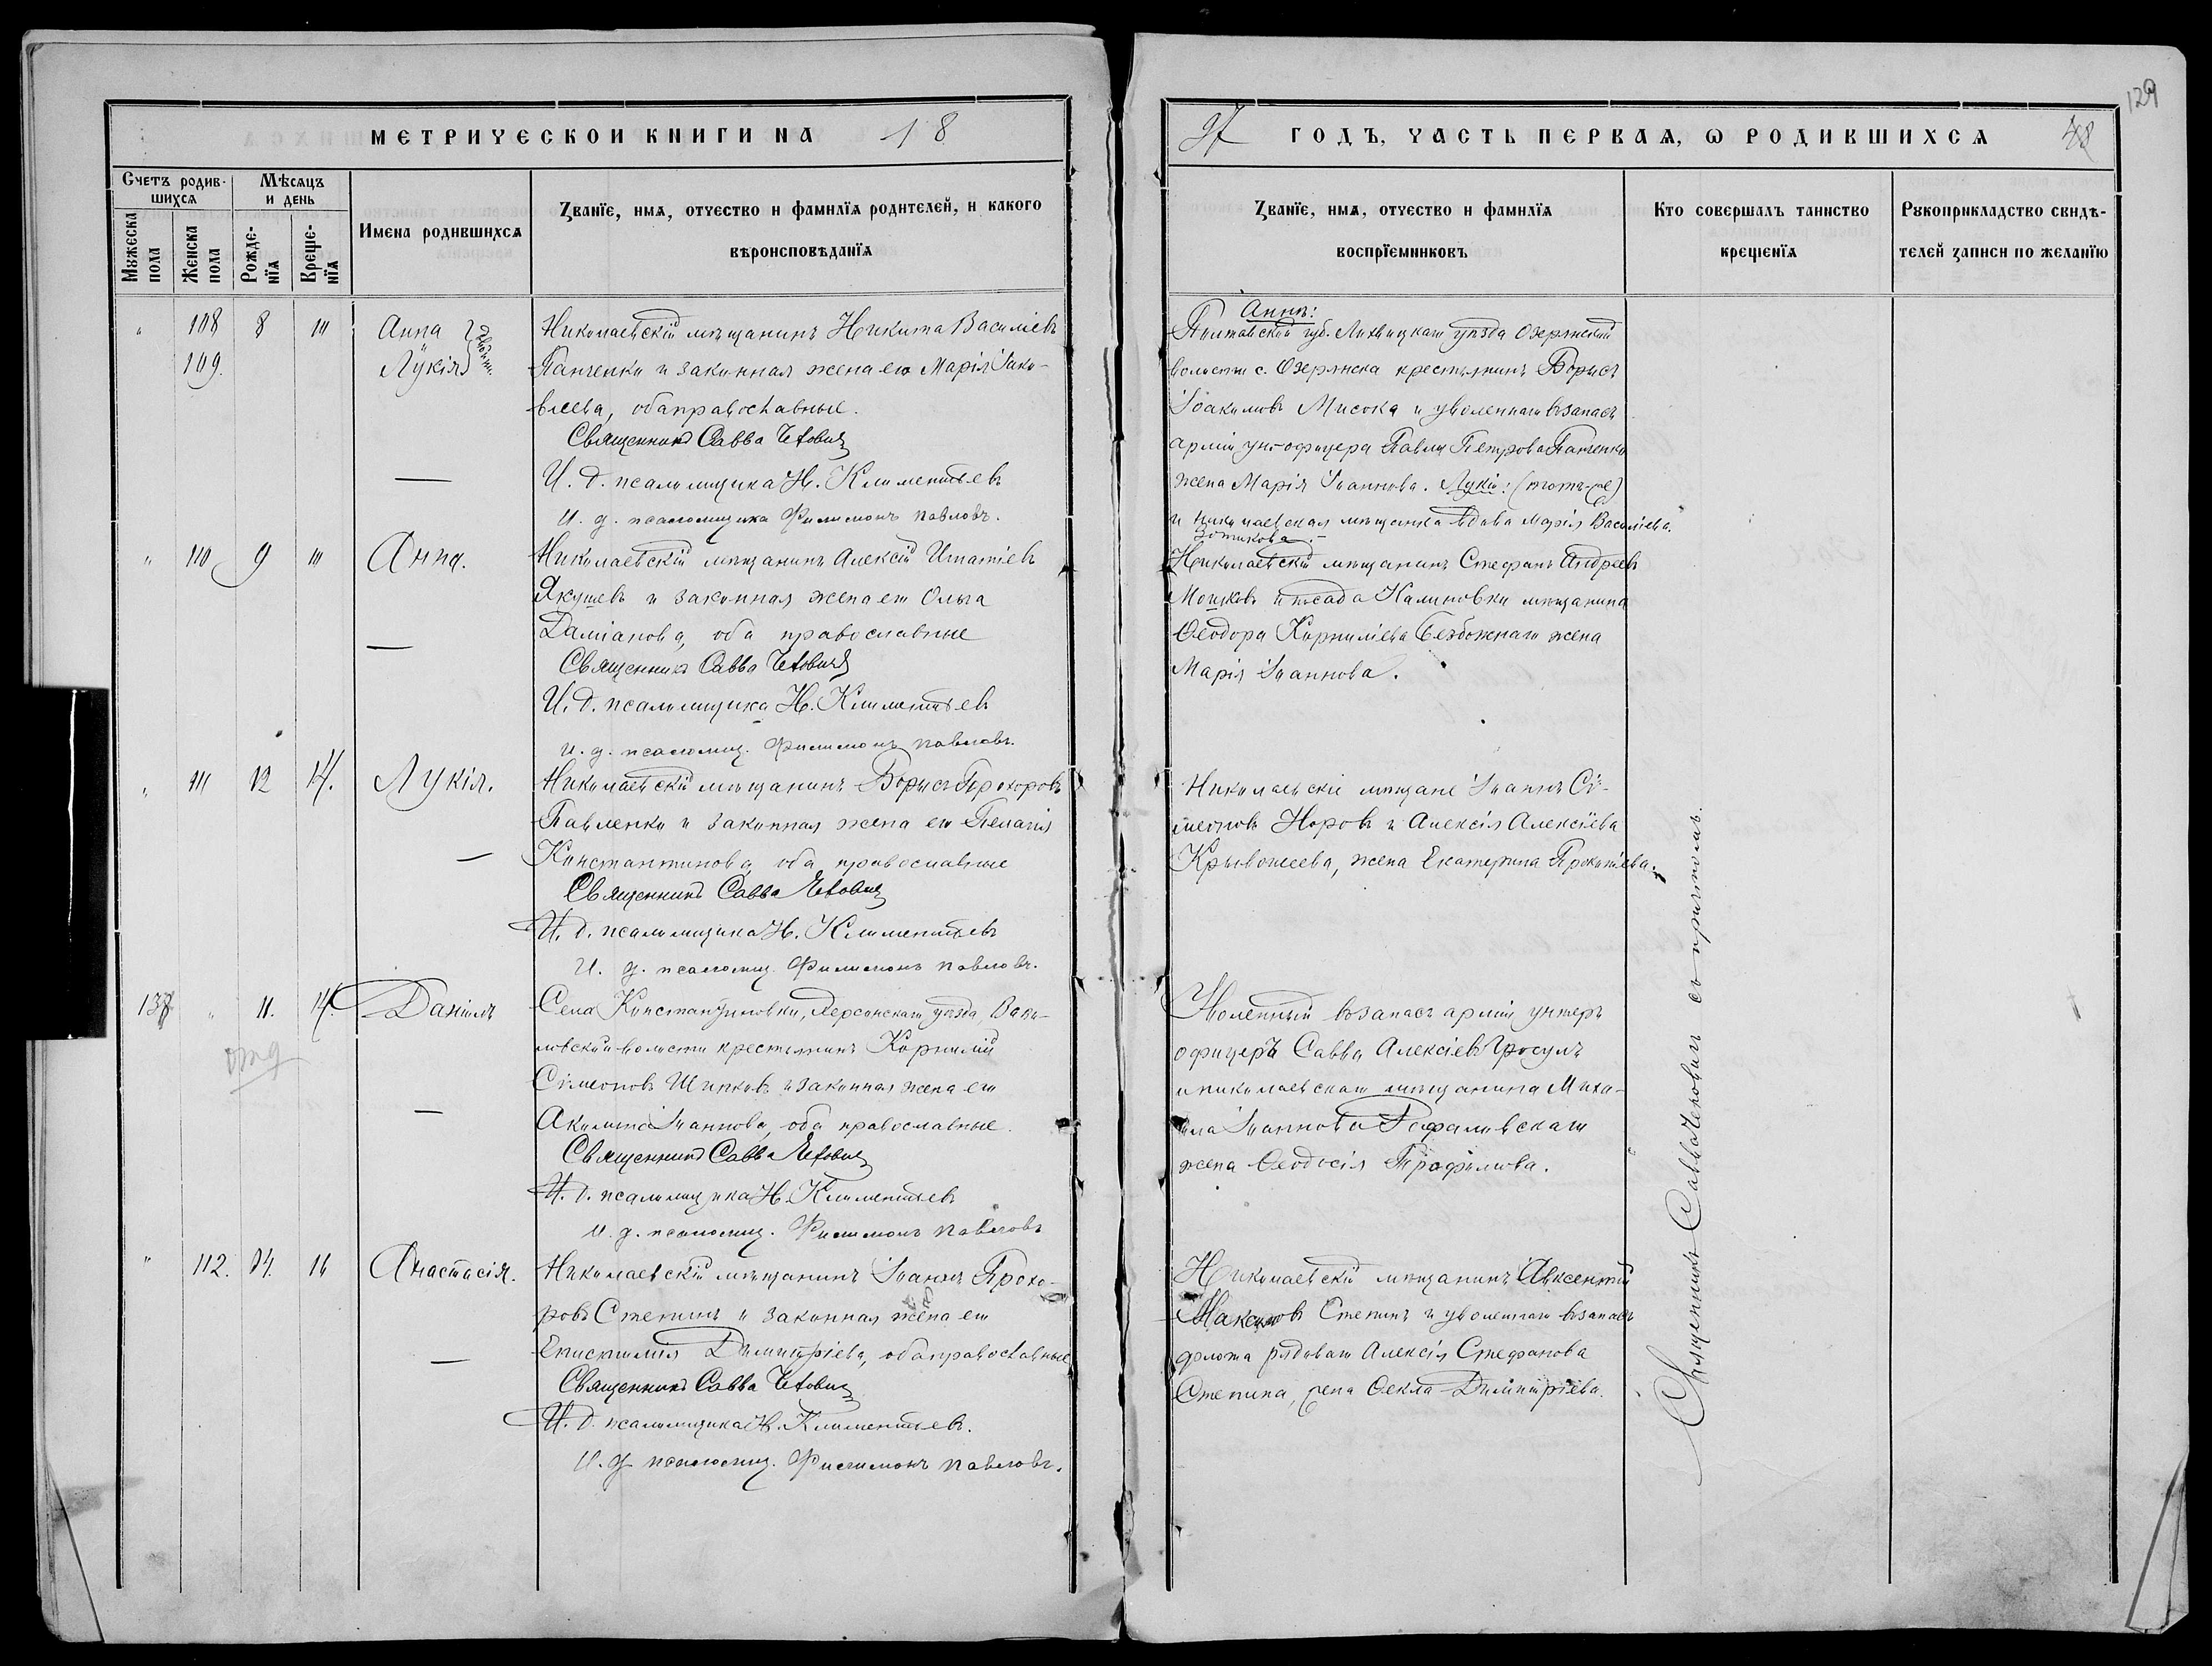 129
МЕТРИЧЕСКОЙ КНИГИ НА 18
97 ГОДЪ, ЧАСТЬ ПЕРВАѦ, Ѡ РОДИВШИХСѦ 48
Счетъ родив-
шихсѧ
Мѣсѧцъ
и день
Мужеска
пола
Женска
пола
Рожде-
нїѧ
Креще-
нїѧ
Имена родившихсѧ
Званїе, имѧ, отчество и фамилїѧ родителей, и какого
вѣроисповѣданїѧ
Званїе, имѧ, отчество и фамилїѧ
воспрїемниковъ
Кто совершалъ таинство
крещенїѧ
Рукоприкладство свидѣ-
телей записи по желанїю
" 108 8 10 Анна
109. Лукія
Николаевскій мѣщанинъ Никита Василіевъ
Панченко и законная жена его Марія Іако-
влева, оба православные.
Священникъ Савва
И. д. псаломщика Н. Климентьевъ
И. д. псаломщика Филимонъ Павловъ.
Аннѣ:
Полтавской губ. Лохвицкаго уѣзда Озерянской
волости с. Озерянска крестьянинъ Борисъ
Іоакимовъ Мисока и уволеннаго въ запасъ
арміи унт-офицера Павла Петрова Панченко
жена Марія Іоаннова. Лукіи: (тотъ-же)
и николаевская мѣщанка вдова Марія Василіева
Зотикова.
" 110 9 10 Анна.
Николаевскій мѣщанинъ Алексій Игнатіевъ
Якушевъ и законная жена его Ольга
Даміанова, оба православные
Священникъ Савва
И. д. псаломщика Н. Климентьевъ
и. д. псаломщ. Филимонъ Павловъ.
Николаевскій мѣщанинъ Стефанъ Андреевъ
и посада Калиновки мѣщанина
Ѳеодора Корниліева Безбожнаго жена
Марія Іоаннова.
" 111 12 14. Лукія.
Николаевскій мѣщанинъ Борисъ Прохоровъ
Павленко и законная жена его Пелагія
Константинова, оба православные
Священникъ Савва
И. д. псаломщика Н. Климентьевъ
И. д. псаломщ. Филимонъ Павловъ.
Николаевскіе мѣщане Іоаннъ Сі-
меоновъ Норовъ и Алексія Алексіева
Кривошеева, жена Екатерина Прокопіева.
137 " 11. 14. Даніилъ
Села Константиновки, Херсонскаго уѣзда,
волости крестьянинъ Корнилій
Сімеоновъ Шипковъ и законная жена его
Акилина Іоаннова, оба православные.
Священникъ Савва
И. д. псаломщика Н. Климентьевъ
и. д. псаломщ. Филимонъ Павловъ
Уволенный въ запасъ арміи унтеръ
офицеръ Савва Алексіевъ Гросулъ
и николаевскаго мѣщанина Миха-
ила Іоаннова Рафаловскаго
жена Ѳеодосія Трофимова.
" 112. 14. 16 Анастасія.
Николаевскій мѣщанинъ Іоаннъ Прохо-
ровъ Степинъ и законная жена его
Епистимія Димитріева, оба православные
Священникъ Савва
И. д. псаломщика Н. Климентьевъ.
И. д. псаломщ. Филимонъ Павловъ.
Николаевскій мѣщанинъ Авксентій
Максимовъ Степинъ и уволеннаго въ запасъ
флота рядоваго Алексія Стефанова
Степина, жена Ѳекла Димитріева.
Священникъ Савва съ причтомъ.